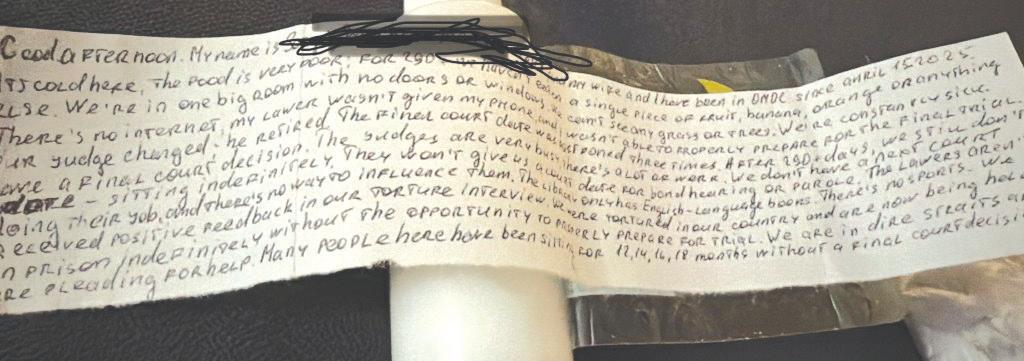 Good afternoon. My name is my wife and I have been in OMDC since april 15 2025.
Its cold here, The food is very poor, for 290 haven't eaten a single piece of fruit, banana, orange or anything
else. We're in one big room with no doors or windows, we can't see any grass or trees. We're constantly sick.
There's no internet, my lawer wasn't given my phone, and I wasn't able to properly prepare for the final trial.
our judge changed: he retired. The finel court date was postponed three times. After 290+days, we still don't
have a final court decision. The judges are very busy, there's a lot of work. We don't have a next court
date - sitting indefinitely. They won't give us a court date for bond hearing or parole. The lawers aren't
doing their job, and there's no way to influence them. The library only has English-language books. There's no sports. We
received positive feedback in our torture interview. We were tortured in our country and are now being held
in prison indefinitely without the opportunity to properly prepare for trial. We are in dire straits an
are pleading for help. Many people here have been sitting for 12,14,16,18 months without a final court decisi